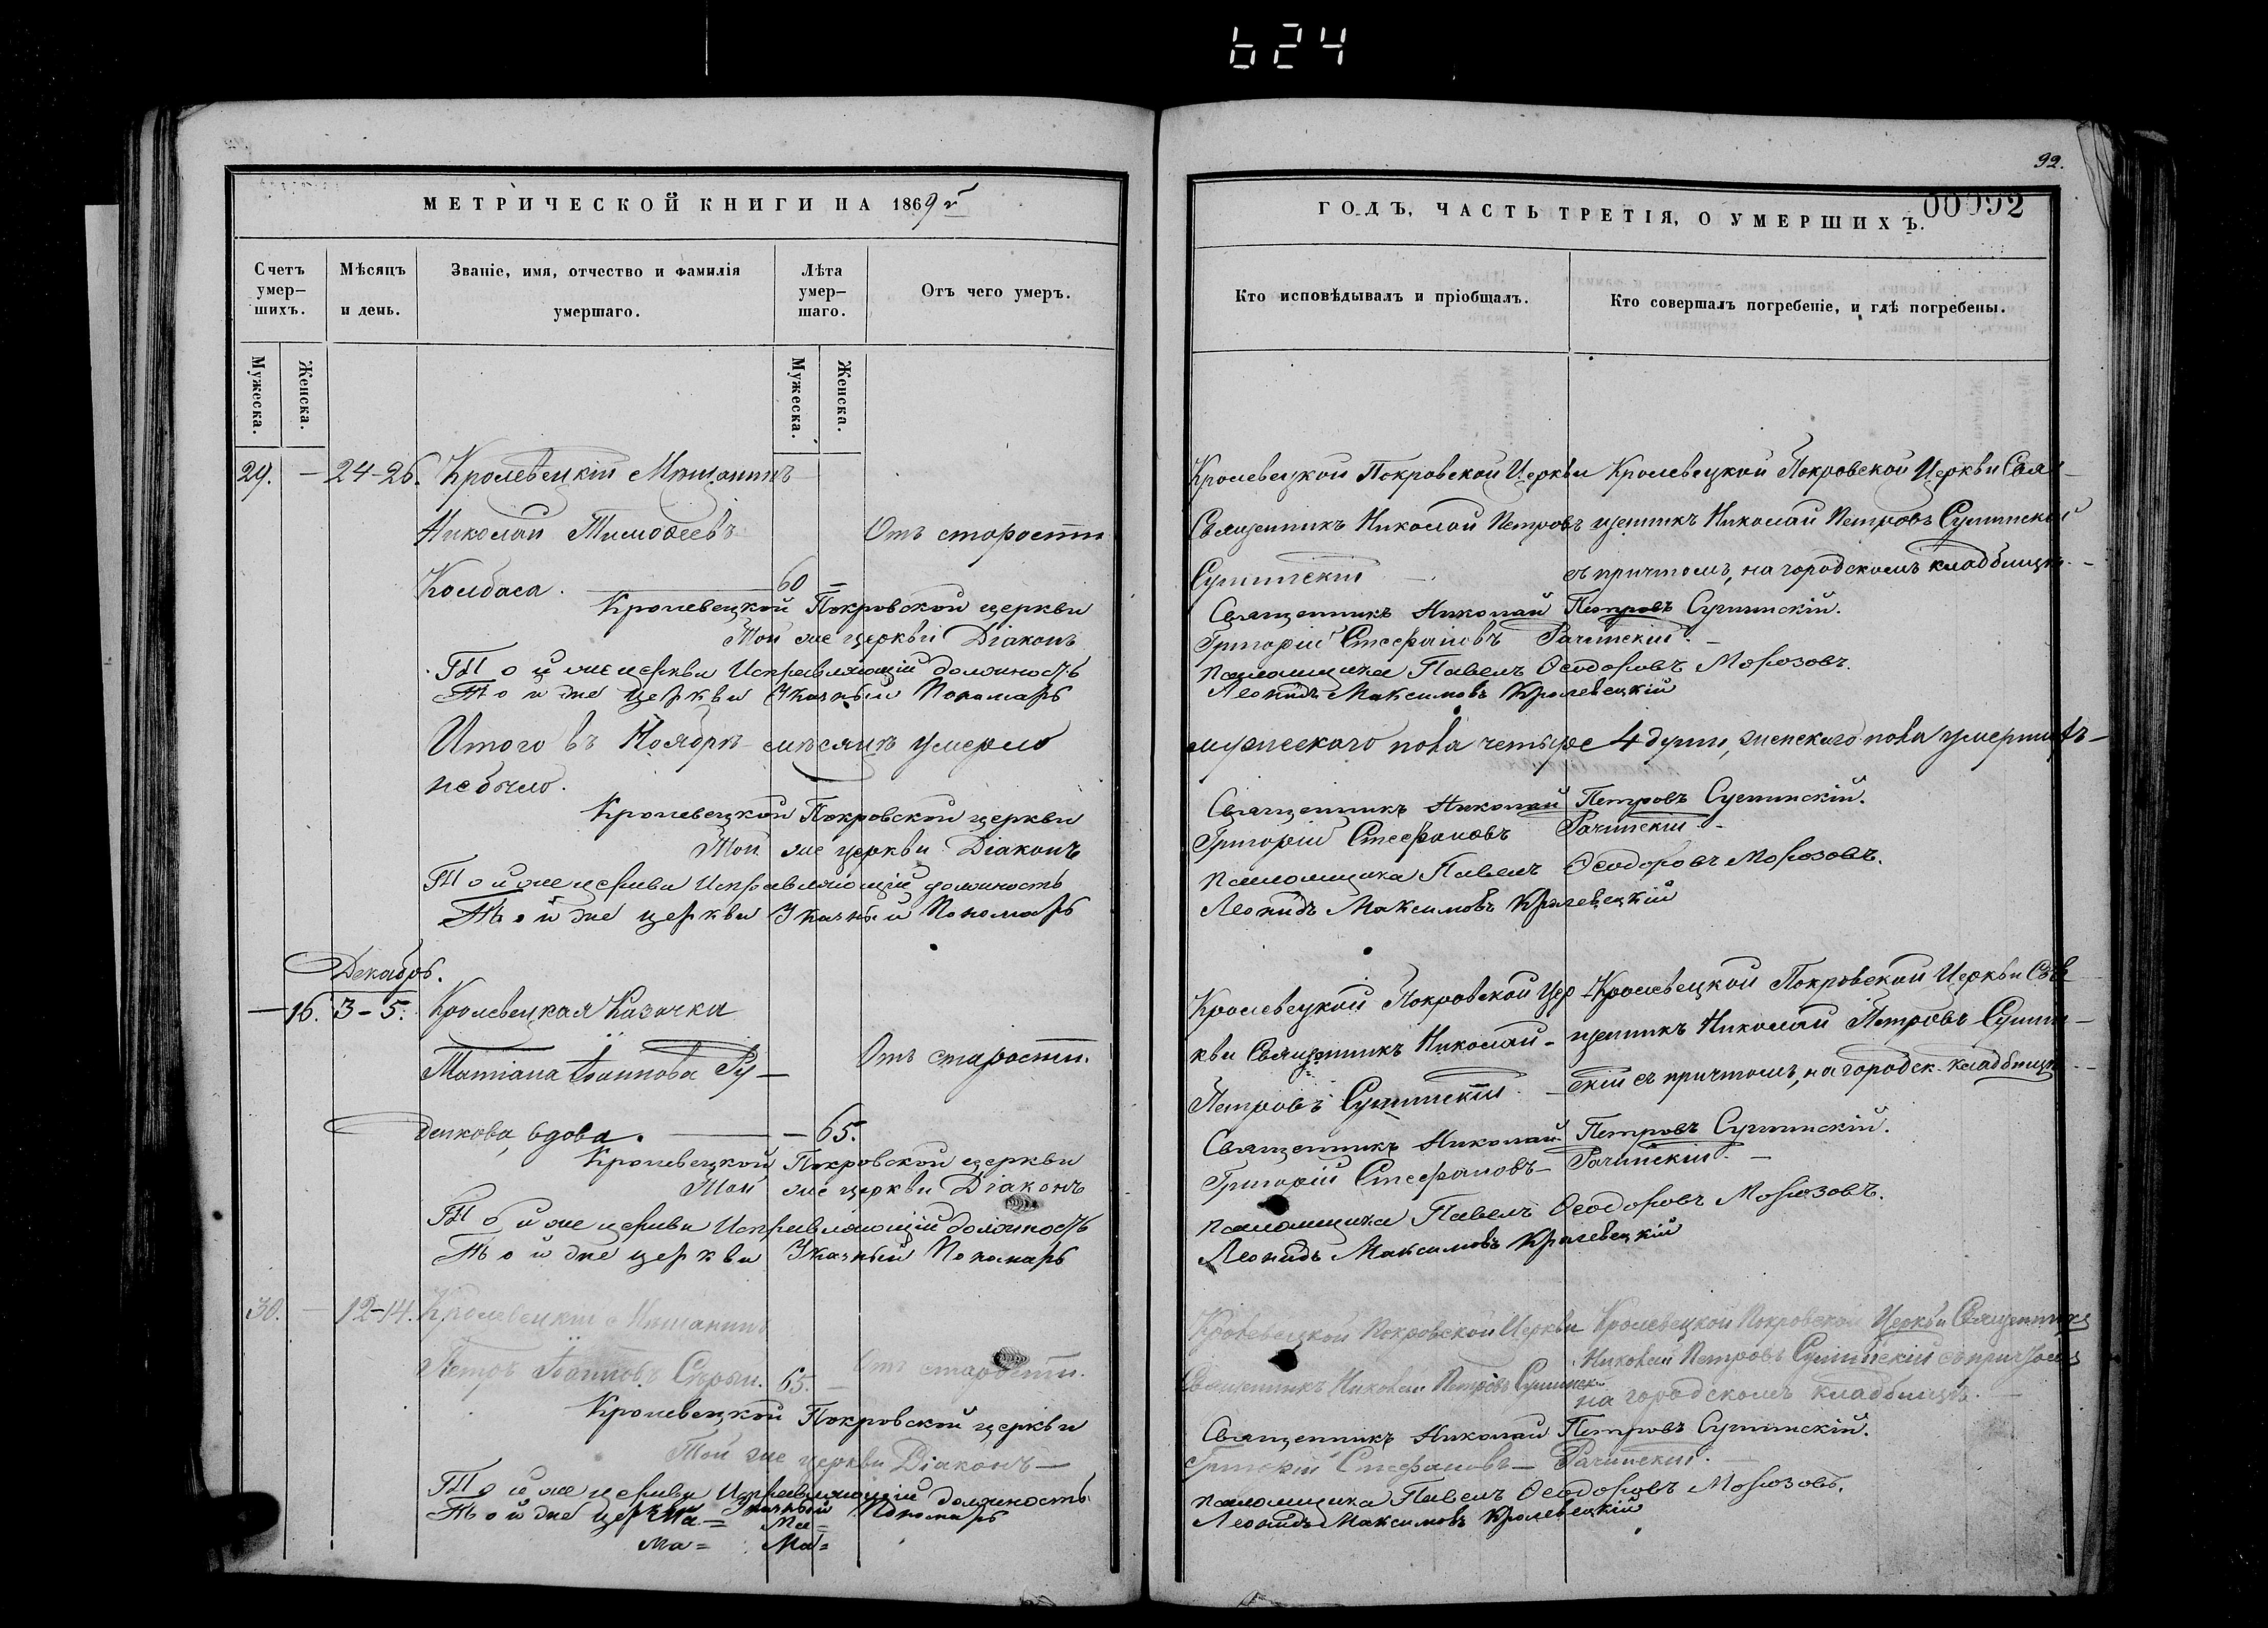 624
МЕТРИЧЕСКОЙ КНИГИ НА 1869 г
Счетъ умер-шихъ.
Мѣсяцъ и день.
Званіе, имя, отчество и фамилія умершаго.
Лѣта умер-шаго.
Отъ чего умеръ.
Мужеска.
Женска.
Мужеска.
Женска.
29. — 24-26. Кролевецкій Мѣщанинъ
Николай Тимоѳеевъ Отъ старости
Колбаса. 60 —
Кролевецкой Покровской церкви
Той же церкви Діаконъ
Той же церкви Исправляющій должность
Той же церкви Указный Пономарь
Итого въ Ноябрѣ мѣсяцѣ умерло
не было.
Кролевецкой Покровской церкви
Той же церкви Діаконъ
Той же церкви Исправляющій должность
Той же церкви Указный Пономарь
Декабрь.
— 16. 3-5. Кролевецкая Казачка
Татіана Іоаннова Ру- Отъ старости.
денкова, вдова. — 65.
Кролевецкой Покровской церкви
Той же церкви Діаконъ
Той же церкви Исправляющій должность
Той же церкви Указный Пономарь
30. — 12-14. Кролевецкій Мѣщанинъ
Петръ Іоанновъ Сѣрый. 65. — Отъ старости.
Кролевецкой Покровской церкви
Той же церкви Діаконъ —
Той же церкви Исправляющій должность
Той же церкви Указный Пономарь
92.
00092
ГОДЪ, ЧАСТЬ ТРЕТІЯ, О УМЕРШИХЪ.
Кто исповѣдывалъ и пріобщалъ.
Кто совершалъ погребеніе, и гдѣ погребены.
Кролевецкой Покровской Церкви Кролевецкой Покровской Церкви Свя-
Священникъ Николай Петровъ щенникъ Николай Петровъ
съ причтомъ, на городскомъ кладбищѣ.
Священникъ Николай Петровъ
Григорій Стефановъ Рачинскій.
Паламщика Павелъ Ѳеодоровъ Морозовъ.
Леонидъ Максимовъ Кролевецкій
мужескаго пола четыре 4 души, женскаго пола умершихъ
Священникъ Николай Петровъ
Григорій Стефановъ Рачинскій.
Паламщика Павелъ Ѳеодоровъ Морозовъ.
Леонидъ Максимовъ Кролевецкій
Кролевецкой Покровской Цер- Кролевецкой Покровской Церкви Свя-
кви Священникъ Николай щенникъ Николай Петровъ
Петровъ скій съ причтомъ, на городск. кладбищѣ.
Священникъ Николай Петровъ
Григорій Стефановъ Рачинскій.
Паламщика Павелъ Ѳеодоровъ Морозовъ.
Леонидъ Максимовъ Кролевецкій
Кролевецкой Покровской Церкви Кролевецкой Покровской Церкви Священникъ
Николай Петровъ съ причтомъ
Священникъ Николай Петровъ
на городскомъ кладбищѣ.
Священникъ Николай Петровъ
Григорій Стефановъ — Рачинскій.
Паламщика Павелъ Ѳеодоровъ Морозовъ.
Леонидъ Максимовъ Кролевецкій